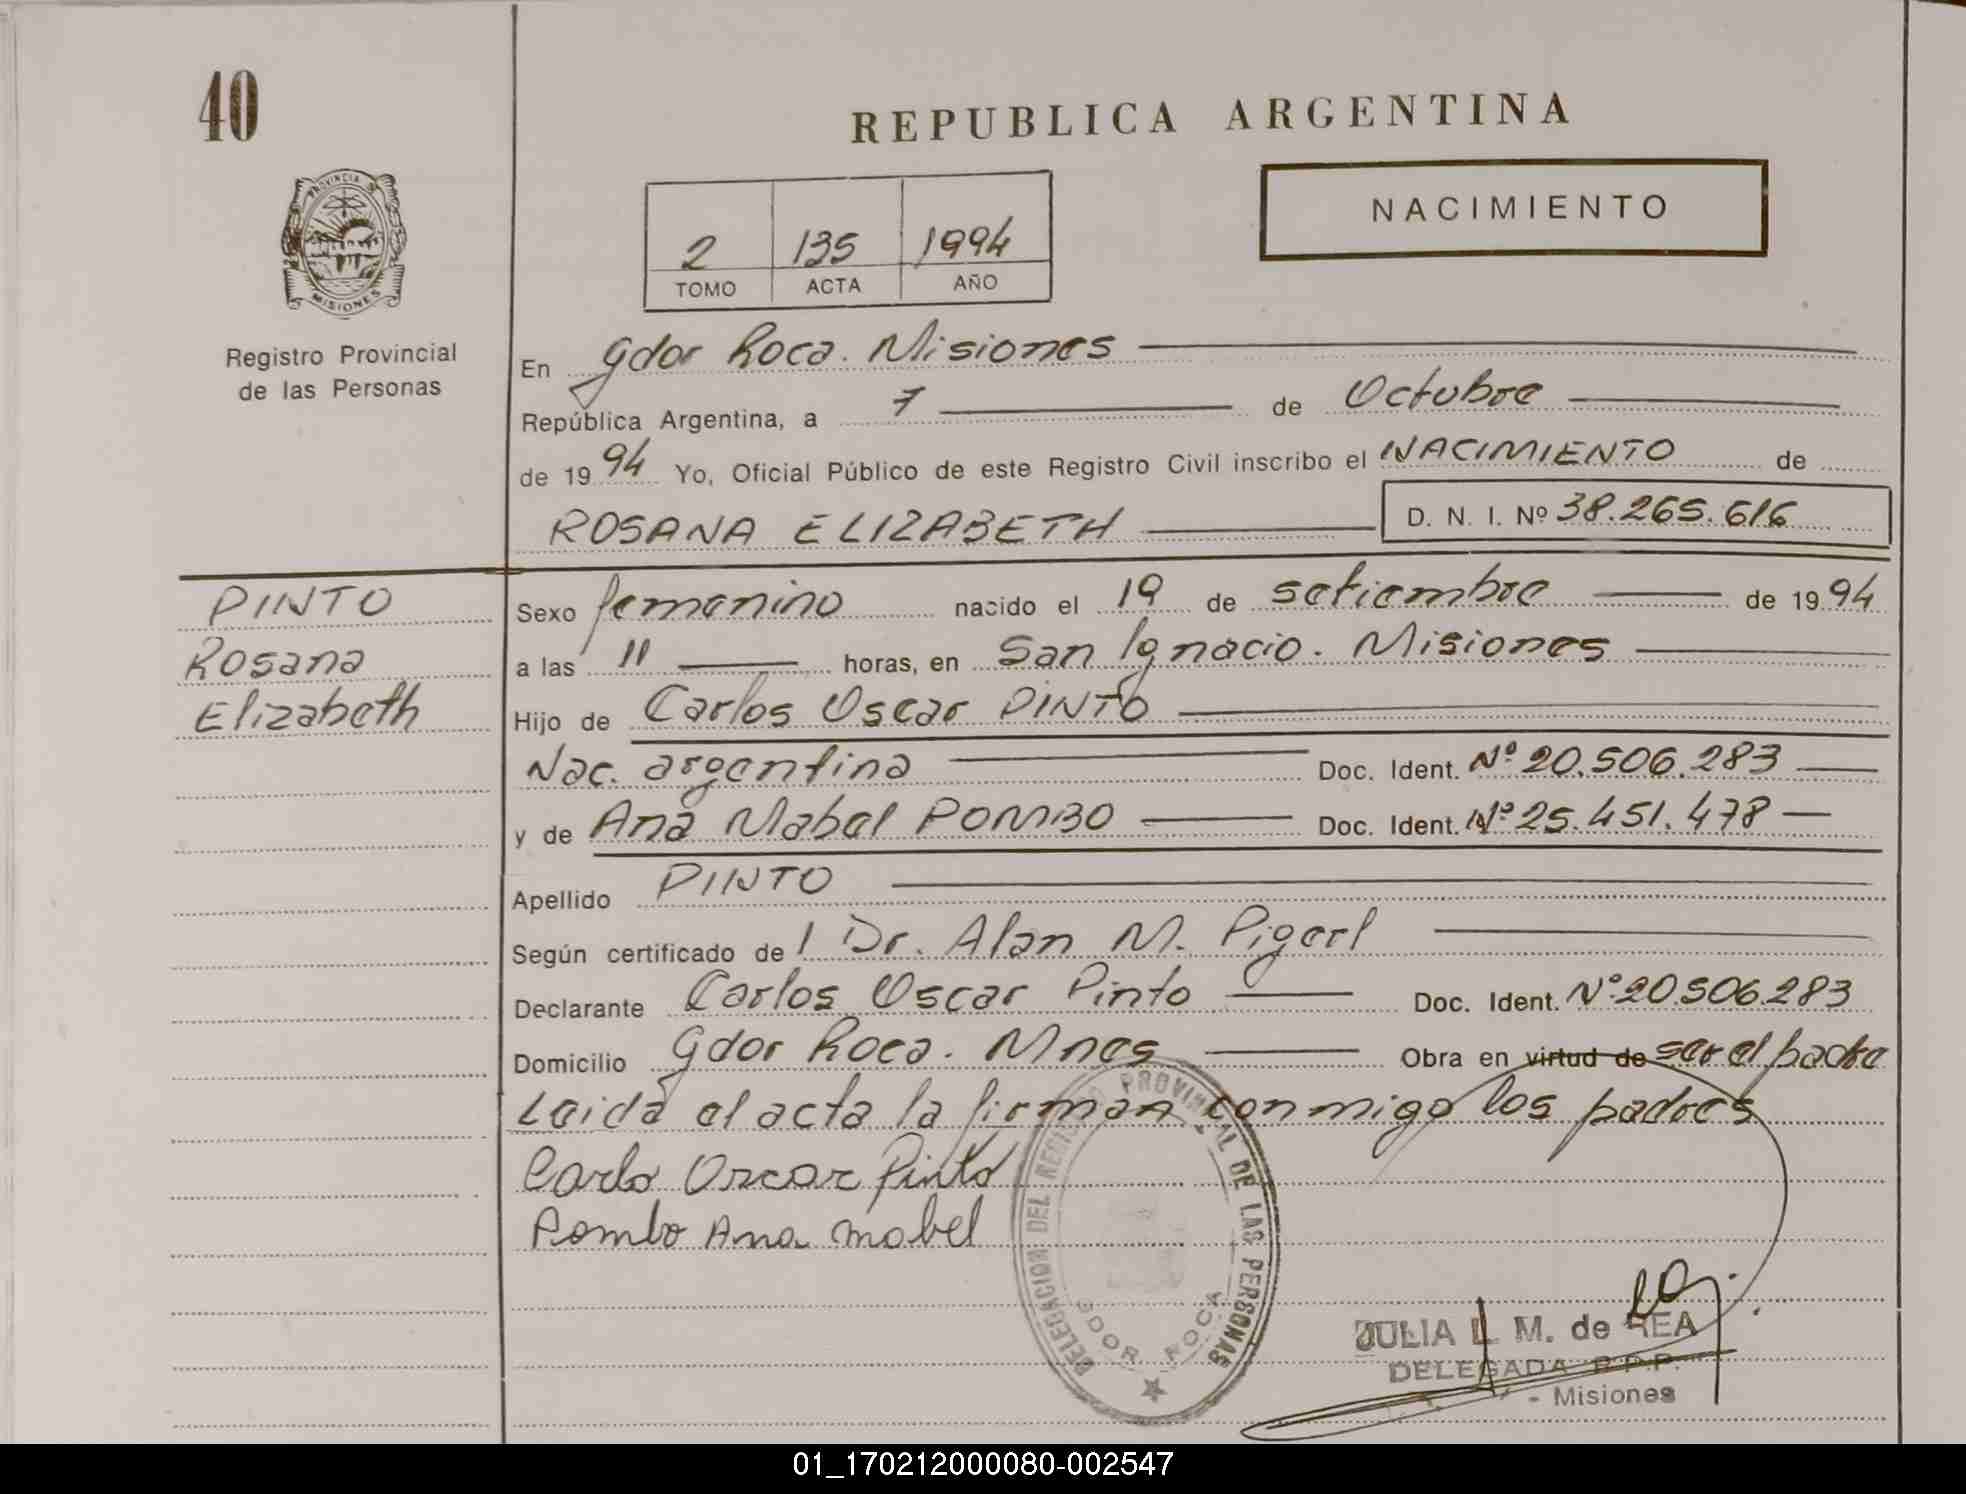 40
REPUBLICA ARGENTINA
NACIMIENTO
2 135 1994
TOMO ACTA AÑO
PROVINCIA DE
MISIONES
Registro Provincial
de las Personas
En Gdor Roca. Misiones
República Argentina, a 7 de Octubre
de 1994 Yo, Oficial Público de este Registro Civil inscribo el NACIMIENTO de
ROSANA ELIZABETH D. N. I. Nº 38.265.616
PINTO
Rosana
Elizabeth
Sexo femenino nacido el 19 de setiembre de 1994
a las 11 horas, en San Ignacio. Misiones
Hijo de Carlos Oscar PINTO
Nac. argentina Doc. Ident. Nº 20.506.283
y de Ana Mabel POMBO Doc. Ident. Nº 25.451.478
Apellido PINTO
Según certificado de l Dr. Alan M. Pigerl
Declarante Carlos Oscar Pinto Doc. Ident. Nº 20.506.283
Domicilio Gdor Roca. Mnes Obra en virtud de ser el padre
Leida el acta la firman conmigo los padres
Carlo Oscar Pinto
Pombo Ana Mabel
DELEGACION DEL REGISTRO PROVINCIAL DE LAS PERSONAS
GDOR ROCA
JULIA L. M. de REA
DELEGADA R.P.P.
- Misiones
01_170212000080-002547